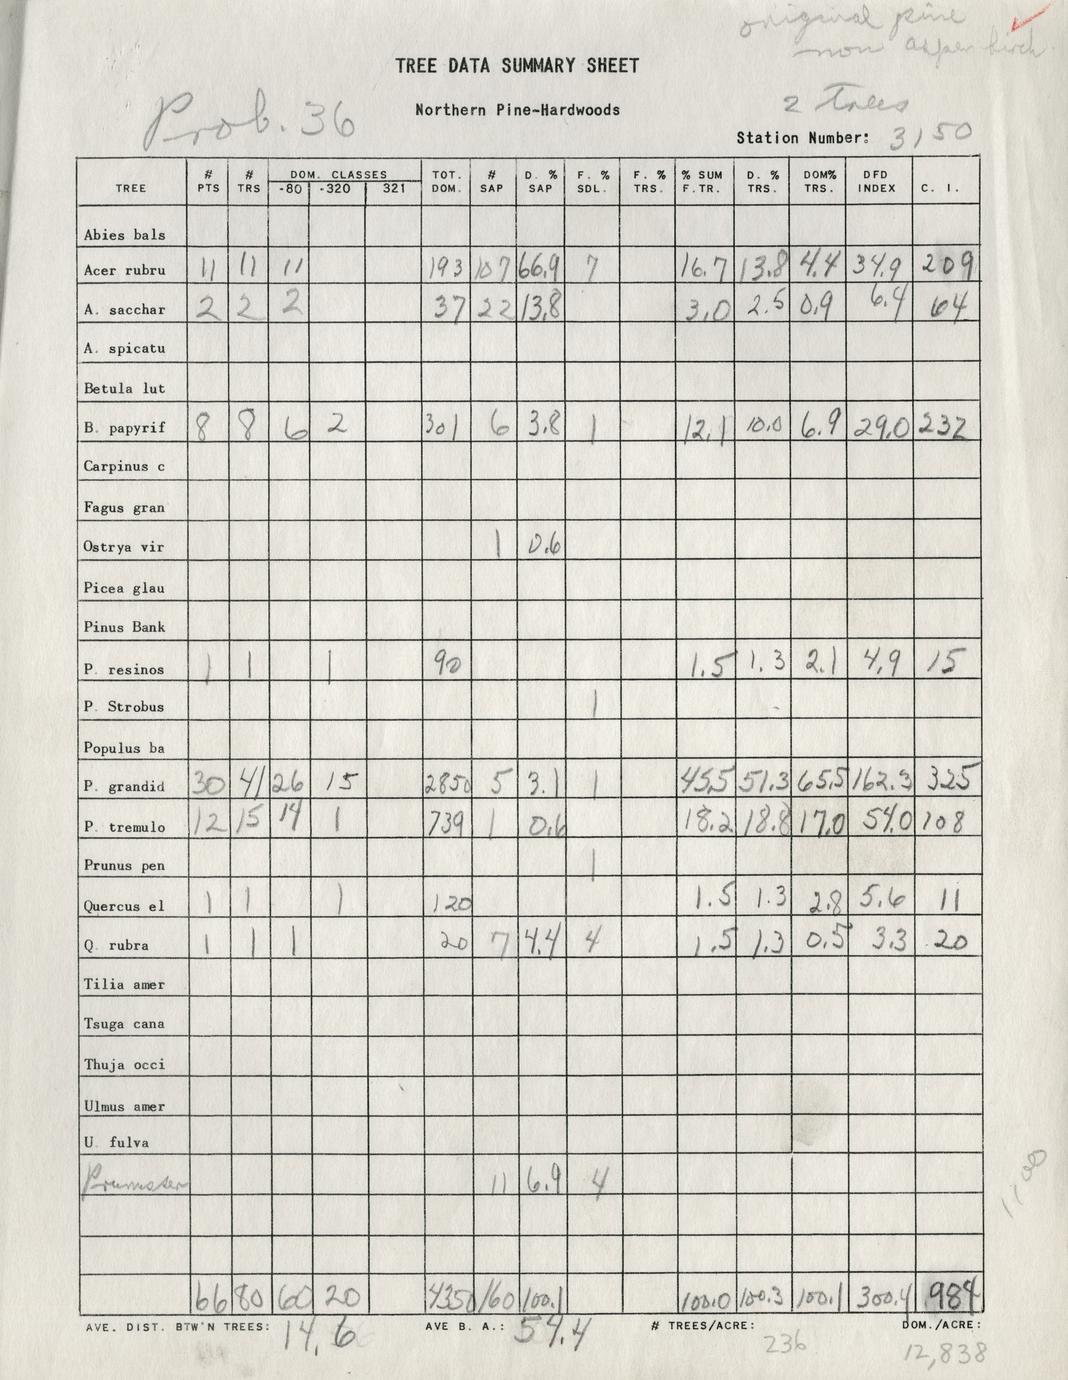 original pine
non aspen birch
TREE DATA SUMMARY SHEET
Prob. 36
Northern Pine-Hardwoods
2 Trees
Station Number: 3150
TREE # PTS # TRS DOM. CLASSES -80 -320 321 TOT. DOM. # SAP D. % SAP F. % SDL. F. % TRS. % SUM F.TR. D. % TRS. DOM% TRS. DFD INDEX C. I.
Abies bals
Acer rubru 11 11 11 193 107 66.9 7 16.7 13.8 4.4 34.9 209
A. sacchar 2 2 2 37 22 13.8 3.0 2.5 0.9 6.4 64
A. spicatu
Betula lut
B. papyrif 8 8 6 2 301 6 3.8 1 12.1 10.0 6.9 29.0 232
Carpinus c
Fagus gran
Ostrya vir 1 0.6
Picea glau
Pinus Bank
P. resinos 1 1 1 90 1.5 1.3 2.1 4.9 15
P. Strobus 1
Populus ba
P. grandid 30 41 26 15 2850 5 3.1 1 45.5 51.3 65.5 162.3 325
P. tremulo 12 15 14 1 739 1 0.6 18.2 18.8 17.0 54.0 108
Prunus pen 1
Quercus el 1 1 1 120 1.5 1.3 2.8 5.6 11
Q. rubra 1 1 1 20 7 4.4 4 1.5 1.3 0.5 3.3 20
Tilia amer
Tsuga cana
Thuja occi
Ulmus amer
U. fulva
11 6.9 4
1100
66 80 60 20 4350 160 100.1 100.0 100.3 100.1 300.4 984
AVE. DIST. BTW'N TREES: 14.6 AVE B. A.: 54.4 # TREES/ACRE: DOM./ACRE:
236 12,838